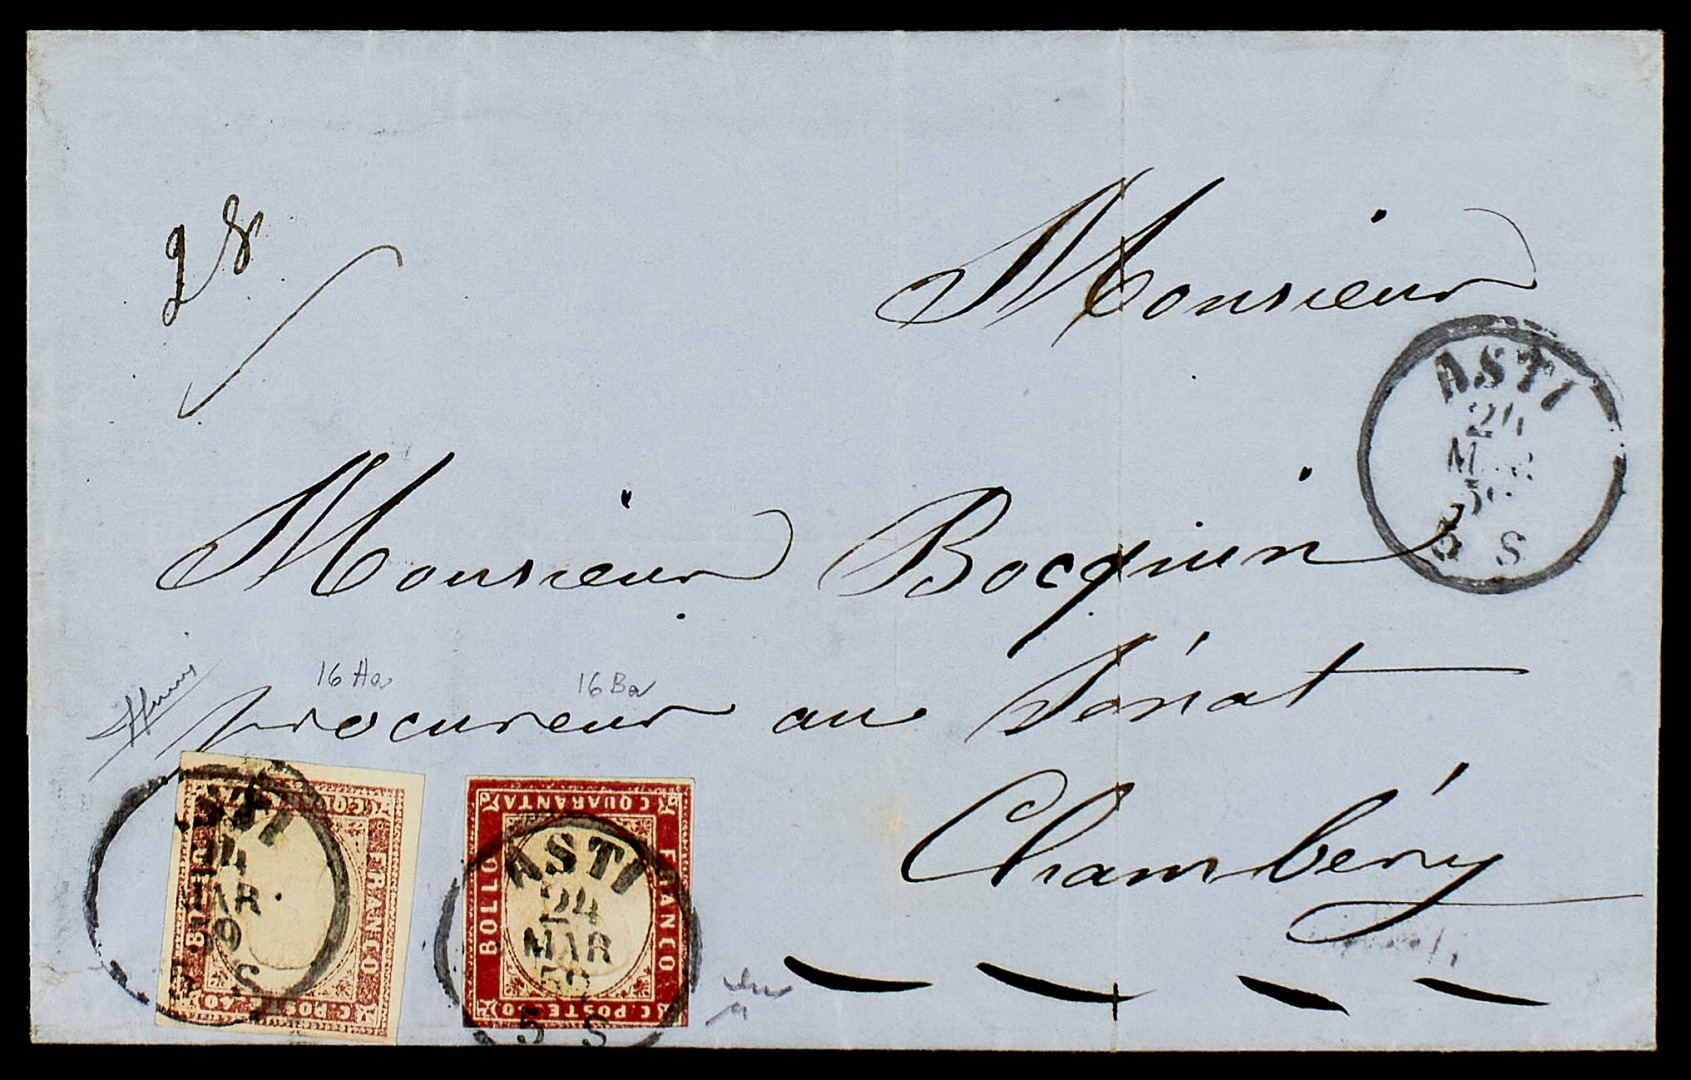 28
Monsieur
ASTI
24
MAR
59
5 S
Monsieur Bocquin
16 Aa
16 Ba
procureur au Sénat
Chambéry
ASTI
24
MAR
59
5 S
FRANCO
C. POSTE 40
C. QUARANTA
BOLLO
FRANCO
C. POSTE 40
ASTI
24
MAR
59
5 S